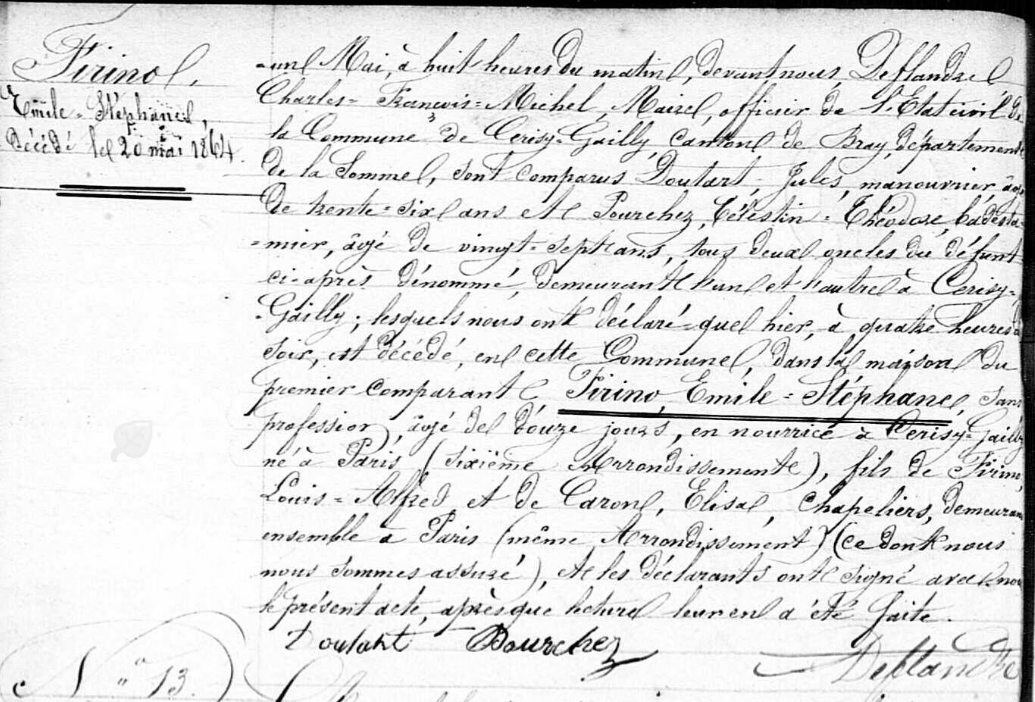 Firino,
Emile-Stéphane,
décédé le 20 mai 1864.
-un Mai, à huit heures du matin, devant nous Deflandre
Charles-François-Michel, Maire, officier de l'Etat civil de
la Commune de Cerisy-Gailly, canton de Bray, département
de la Somme, sont comparus Doutart, Jules, manouvrier, âgé
de trente-six ans et Pourchez, Célestin-Théodose,
-mier, âgé de vingt-sept ans, tous deux oncles du défunt
ci-après dénommé, demeurant l'un et l'autre à Cerisy-
-Gailly; lesquels nous ont déclaré que hier, à quatre heures du
soir, est décédé, en cette Commune, dans la maison du
premier comparant Firino, Emile-Stéphane, sans
profession, âgé de douze jours, en nourrice à Cerisy-Gailly
né à Paris (sixième Arrondissement), fils de Firino,
Louis-Alfred et de Caron, Elisa, chapeliers, demeurant
ensemble à Paris (même Arrondissement) (ce dont nous
nous sommes assuré), et les déclarants ont signé avec nous
le présent acte, après que lecture leur en a été faite.
Doutart Pourchez
Deflandre
N° 13.